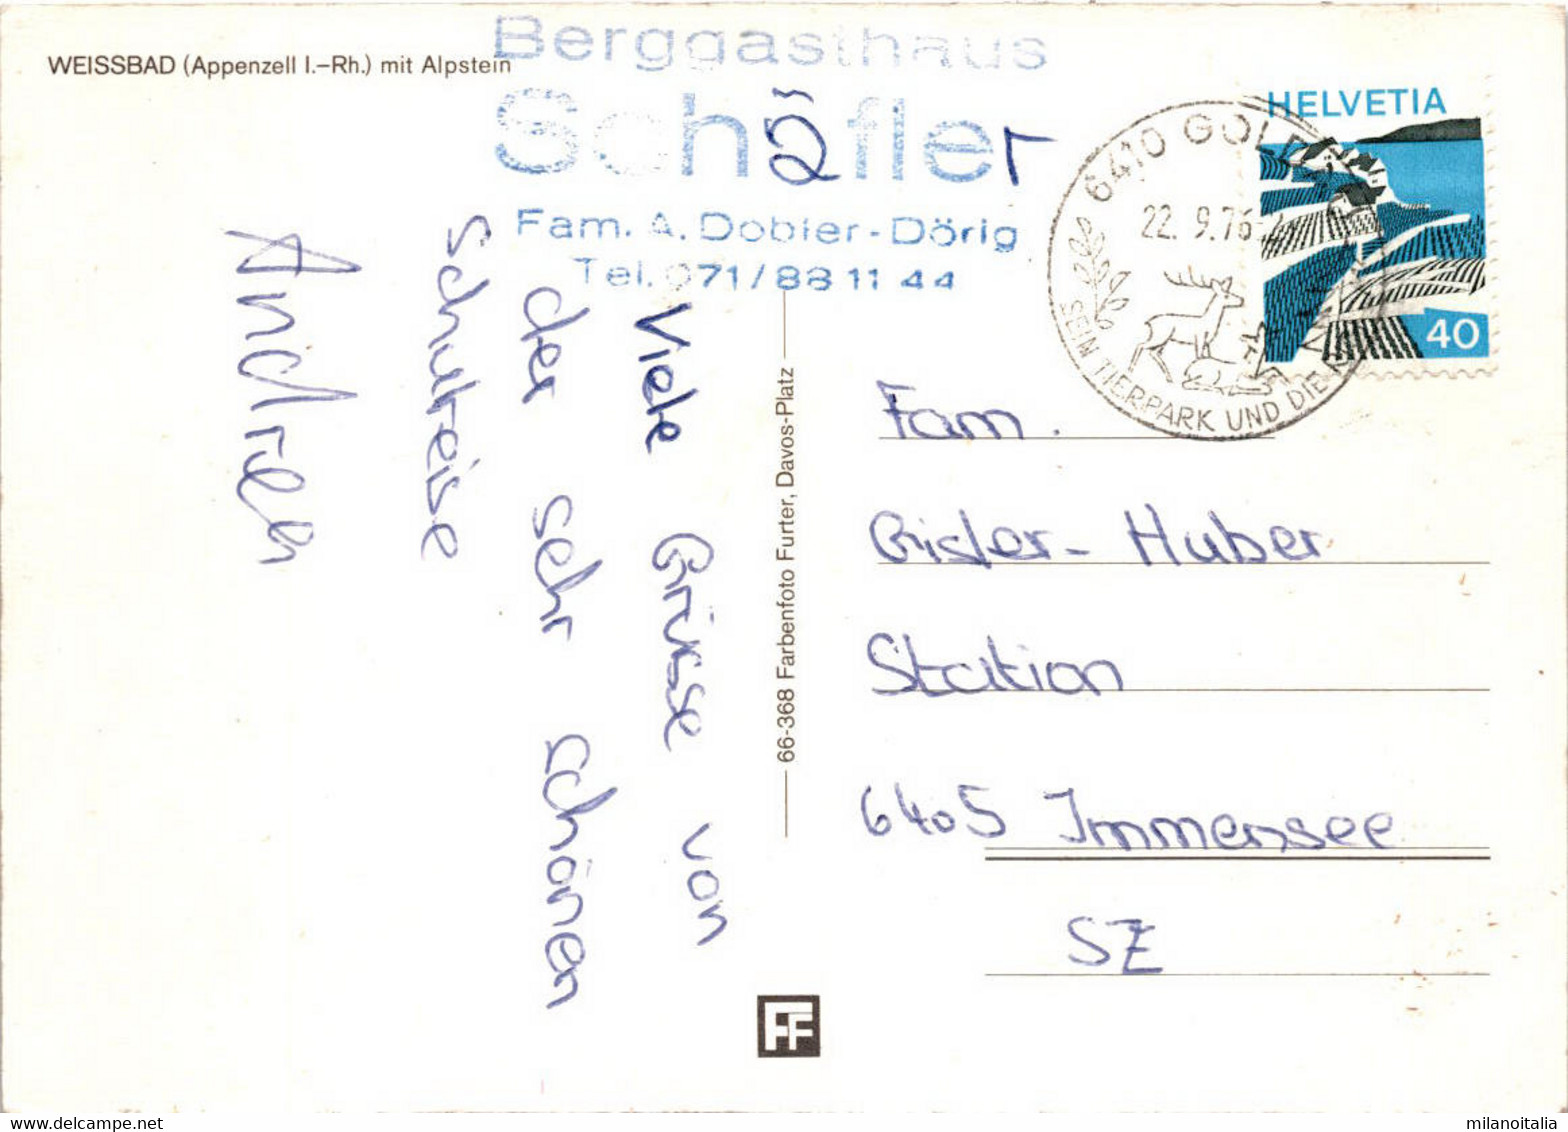 WEISSBAD (Appenzell I.-Rh.) mit Alpstein
Berggasthaus
Schäfler
Fam. A. Dobler-Dörig
Tel. 071/88 11 44
HELVETIA
40
6410 GOLDAU
22. 9.76
SEIN TIERPARK UND DIE
Viele Grüsse von
der sehr schönen
Schulreise
Andrea
66-368 Farbenfoto Furter, Davos-Platz
Fam.
Gisler-Huber
Station
6405 Immensee
SZ
FF
milanoitalia